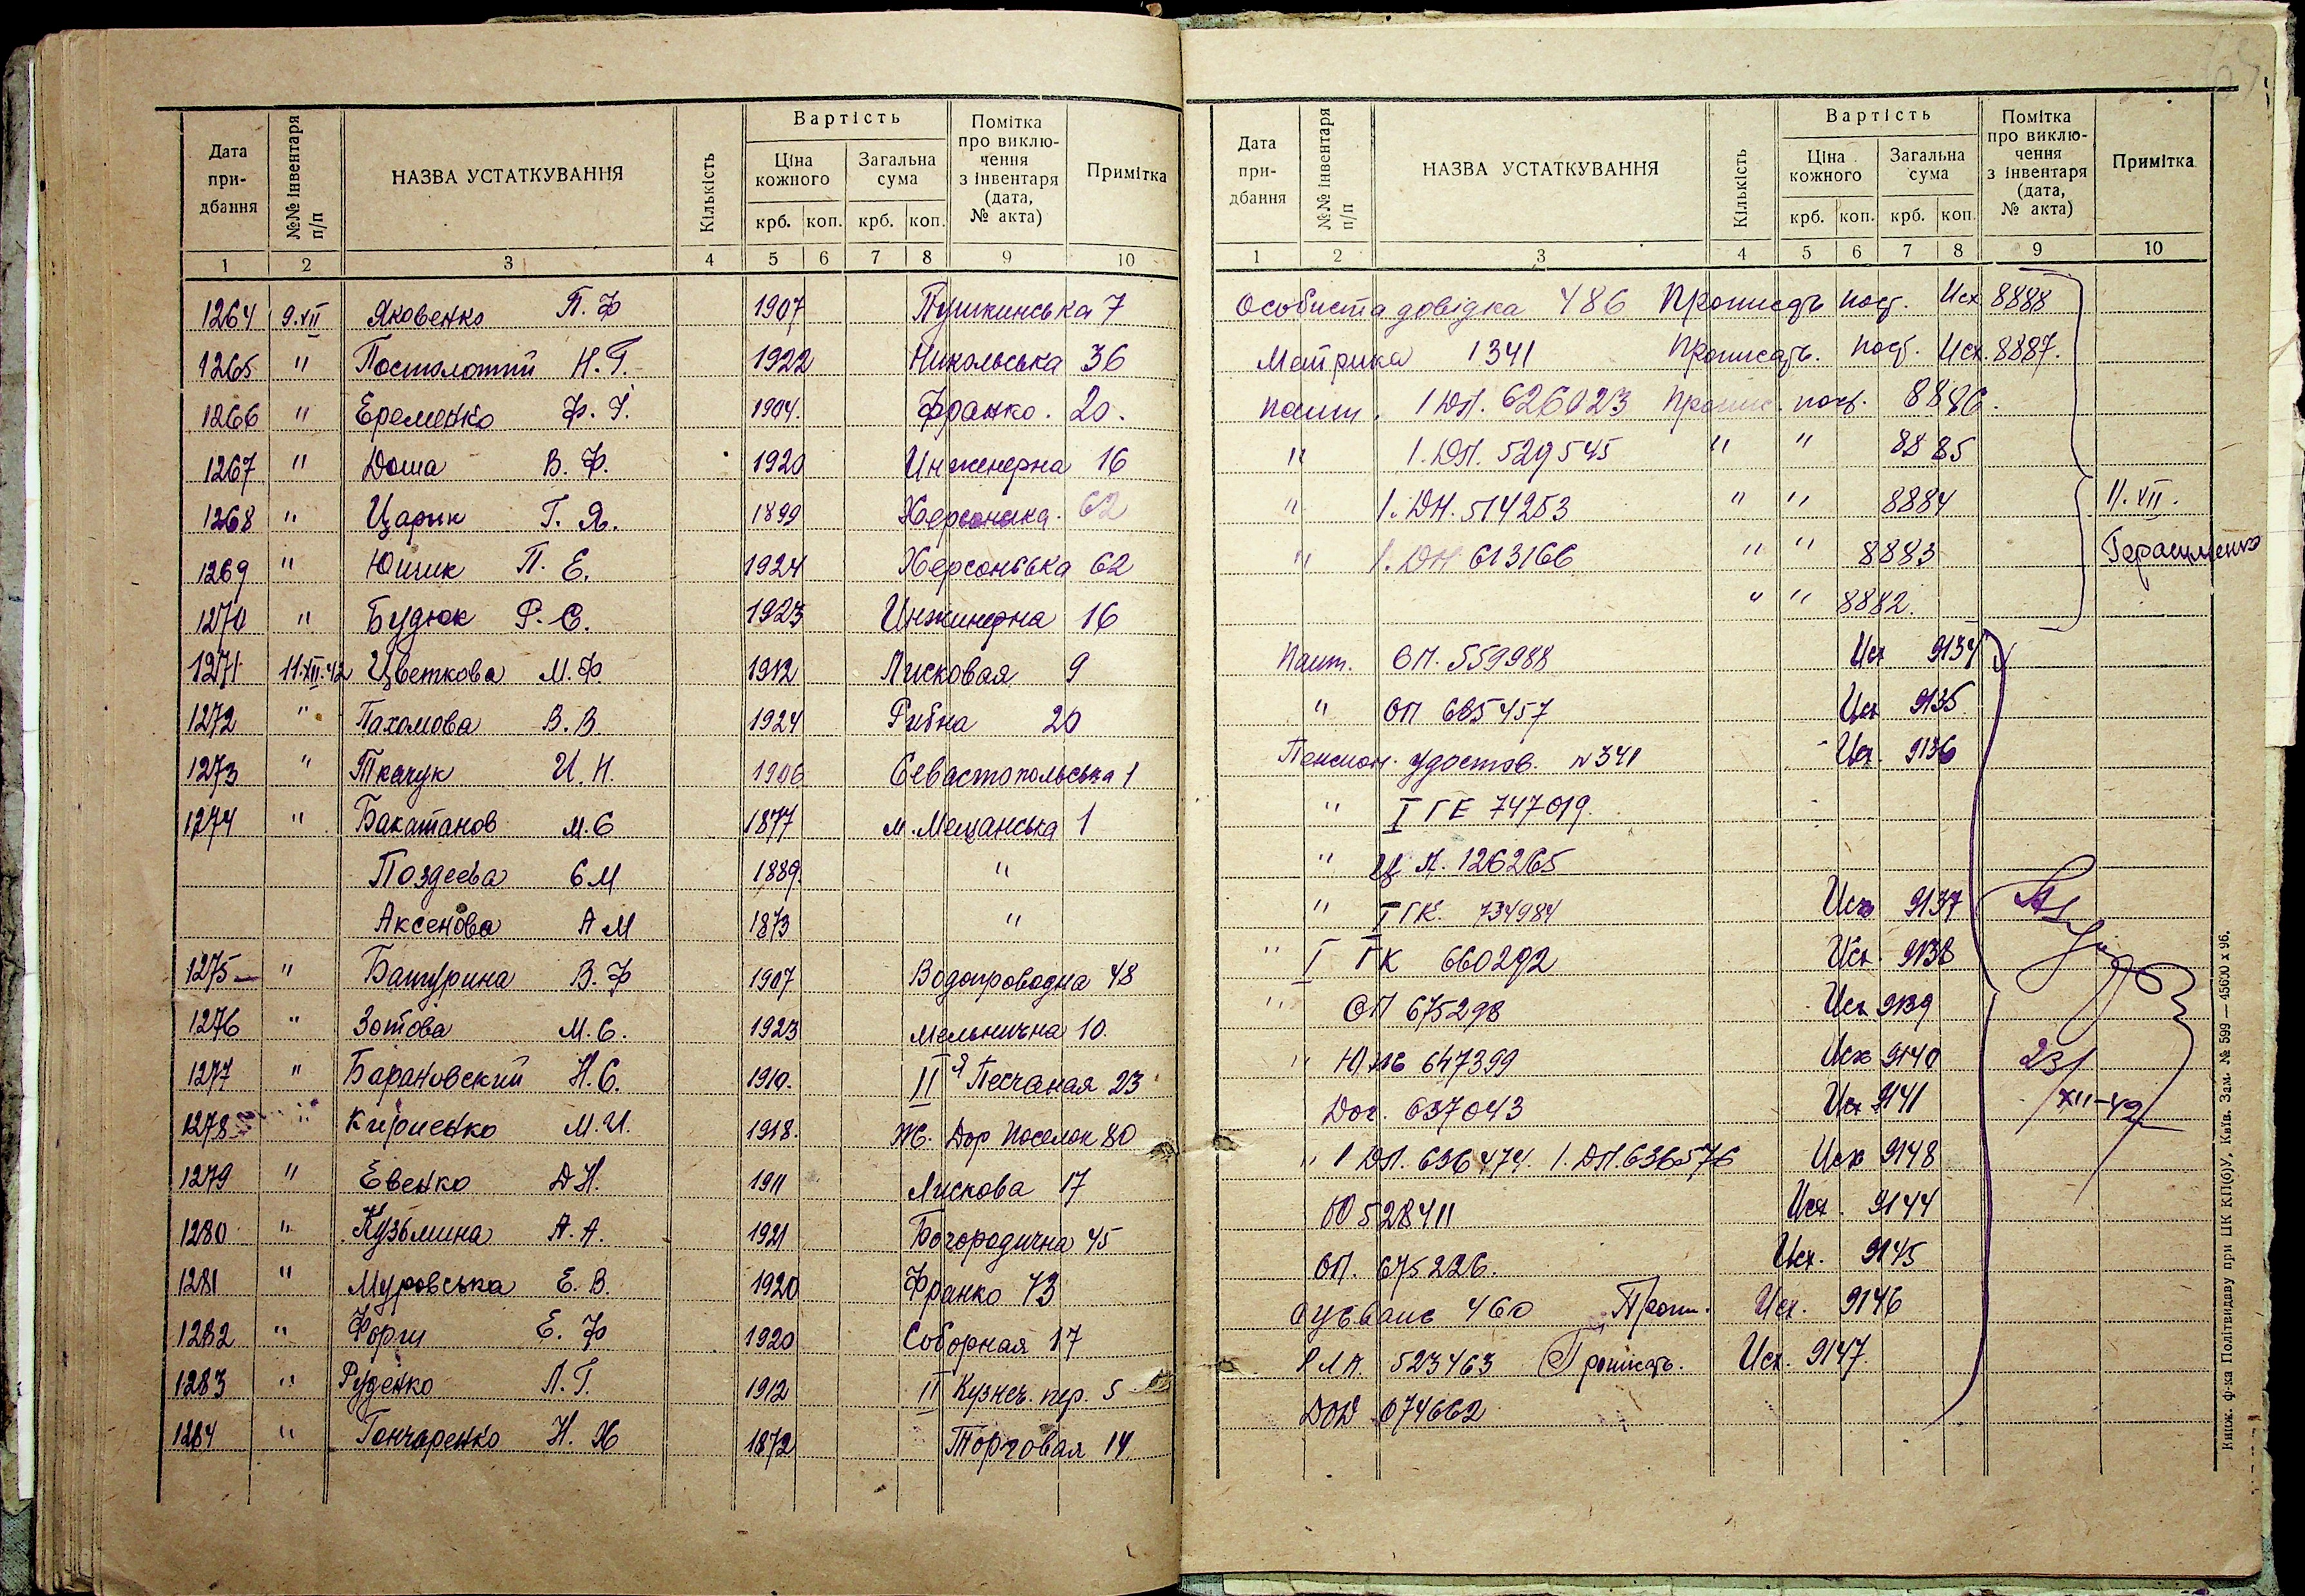 Дата придбання
№№ інвентаря п/п
НАЗВА УСТАТКУВАННЯ
Кількість
Вартість
Ціна кожного
Загальна сума
крб. коп. крб. коп.
Помітка про виключення з інвентаря (дата, № акта)
Примітка
1 2 3 4 5 6 7 8 9 10
1264 9.XII Яковенко П. Ф 1907 Пушкинська 7
1265 " Н. Г. 1922 Никольська 36
1266 " Еременко Ф. 1904. Франко. 20.
1267 " Доша В. Ф. 1920 Инженерна 16
1268 " Царик Г. Я. 1899 Херсонська. 62
1269 " П. Е. 1924 Херсонська 62
1270 " Будюк Р. С. 1923 Инжинерна 16
1271 11.XII.42 Цветкова М. Ф. 1912 Лисковая 9
1272 " Пахомова В. В. 1924 Рибна 20
1273 " Ткачук И. Н. 1906 Севастопольська 1
1274 " Бакатанов М. С 1877 м. Мещанська 1
Поздеева Є М 1889. "
Аксенова А М 1873 "
1275 — " Батурина В. Ф 1907 Водопроводна 48
1276 " Зотова М. С. 1923 Мельнична 10.
1277 " Барановский Н. С. 1910. II я Песчаная 23
1278 " Кириенко М. И. 1918. Ж. Дор Поселок 80
1279 " Евенко Д Н. 1911 Лискова 17
1280 " Кузьмина А. А. 1921 Богородична 45
1281 " Муровська Е. В. 1920 Франко 73
1282 " Е. Ф 1920 Соборная 17
1283 " Руденко Л. Г. 1912 II Кузнеч. пер. 5
1284 " Гончаренко Н. Х 1872 Торговая 14
Дата придбання
№№ інвентаря п/п
НАЗВА УСТАТКУВАННЯ
Кількість
Вартість
Ціна кожного
Загальна сума
крб. коп. крб. коп.
Помітка про виключення з інвентаря (дата, № акта)
Примітка
1 2 3 4 5 6 7 8 9 10
Особиста довідка 486 Исх 8888
Метрика 1341 Прописать. Исх. 8887.
пашп. 1 ДП. 626023 8886.
" 1. ДП. 529545 " " 8885
" 1. ДН. 514253 " " 8884 11. XII.
" 1. ДН 613166 " " 8883 Герасименко
" " 8882.
Пашп. ОП. 559988 Исх 9134
" ОП 685457 Исх 9135
Пенсион. удостов. № 341 Исх. 9136
" I ГЕ 747019.
" 126265
" I ГК. 734984 Исх 9137
" I ГК 660292 Исх. 9138
" ОП 675298 Исх. 9139
" 647399 Исх 9140 23/
Дов. 637043 Исх 9141 XII-42
" 1 ДП. 636474. 1. ДП. 636576 Исх 9148
528411 Исх. 9144
ОП. 675226. Исх. 9145
460 Исх. 9146
523463 Прописать. Исх. 9147.
074662
Книж. ф-ка Політвидаву при ЦК КП(б)У, Київ. Зам. № 599 — 45600 x 96.